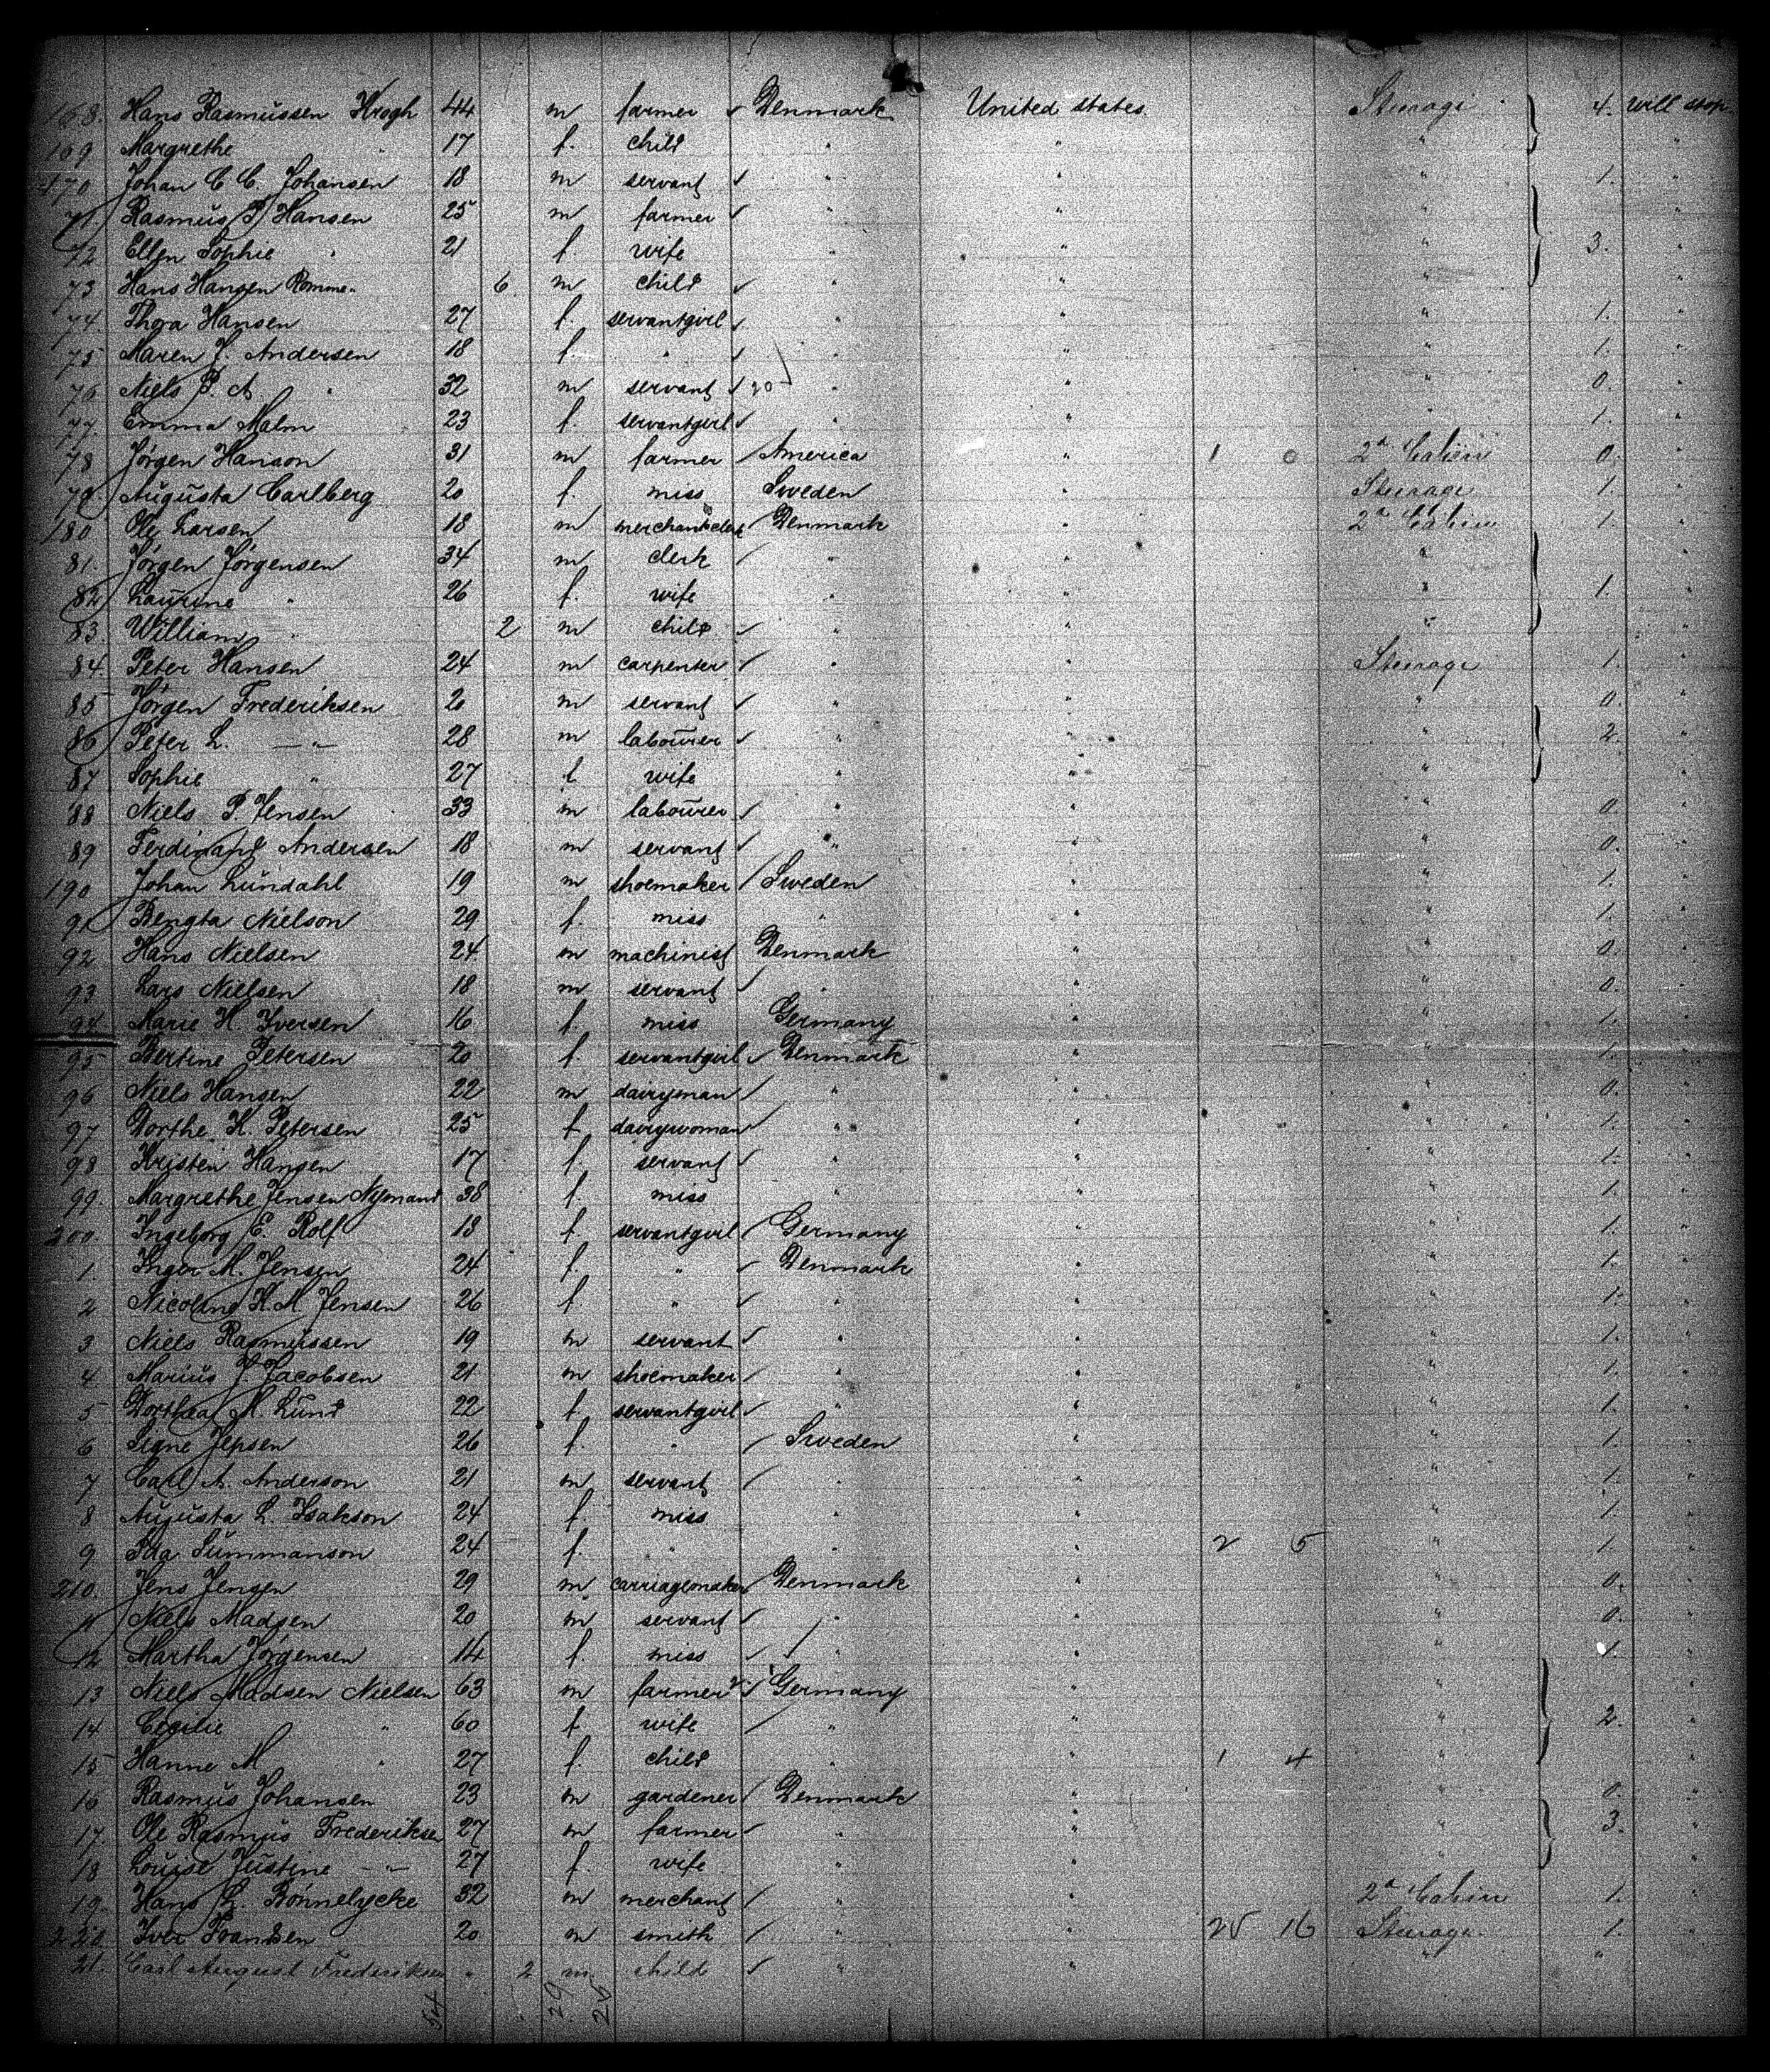 168. Hans Rasmussen Krogh 44 m farmer Denmark United states. Steerage 4. will stop
169 Margrethe " 17 f. child " " " "
170 Johan C. C. Johansen 18 m servant " " " 1. "
71. Rasmus P. Hansen 25 m farmer " " " "
72 Ellen Sophie " 21 f. wife " " " 3. "
73 Hans Hansen Romme 6 m child " " " "
74. Thora Hansen 27 f. servantgirl " " " 1. "
75 Maren J. Andersen 18 f. " " " " 1. "
76 Niels P. A. " 32 m servant 20 " " " 0. "
77. Emma Malm 23 f. servantgirl " " " 1. "
78 Jörgen Hanson 31 m farmer America " 1 0 2a Cabin 0. "
79. Augusta Carlberg 20 f. miss Sweden " Steerage 1. "
180 Ole Larsen 18 m merchantclerk Denmark " 2a Cabin 1. "
81. Jörgen Jörgensen 34 m clerk " " " "
82 Laurine " 26 f. wife " " " 1. "
83 William " 2 m child " " " "
84. Peter Hansen 24 m carpenter " " Steerage 1. "
85 Jörgen Frederiksen 20 m servant " " " 0. "
86 Peter L. — " — 28 m labourer " " " 2. "
87 Sophie " 27 f. wife " " " "
88 Niels P. Jensen 33 m labourer " " " 0. "
89 Ferdinand Andersen 18 m servant " " " 0. "
190 Johan Lundahl 19 m shoemaker Sweden " " 1. "
91 Bengta Nielson 29 f. miss " " " 1. "
92 Hans Nielsen 24 m machinist Denmark " " 0. "
93 Lars Nielsen 18 m servant " " " 0. "
94. Marie H. Iversen 16 f. miss Germany " " 1. "
95 Bertine Petersen 20 f. servantgirl Denmark " " 1. "
96 Niels Hansen 22 m dairyman " " " 0. "
97 Dorthe K. Petersen 25 f. dairywoman " " " 1. "
98 Kristen Hansen 17 f. servant " " " 1. "
99. Margrethe Jensen Nymand 38 f. miss " " " 1. "
200. Ingeborg E. Rolf 18 f. servantgirl Germany " " 1. "
1. Inger M. Jensen 24 f. " Denmark " " 1. "
2 Nicoline K. M. Jensen 26 f. " " " " 1. "
3 Niels Rasmussen 19 m servant " " " 1. "
4 Marius J. Jacobsen 21 m shoemaker " " " 1. "
5 Dorthea M. Lund 22 f. servantgirl " " " 1. "
6 Signe Jepsen 26 f. " Sweden " " 1. "
7 Carl A. Anderson 21 m servant " " " 1. "
8 Augusta L. Isakson 24 f. miss " " " 1. "
9 Ida Summanson 24 f. " " " 2 5 " 1. "
210. Jens Jensen 29 m carriagemaker Denmark " " 0. "
11 Niels Madsen 20 m servant " " " 0. "
12 Martha Jörgensen 14 f. miss " " " 1. "
13 Niels Madsen Nielsen 63 m farmer Germany " " "
14 Cecilie " 60 f. wife " " " 2. "
15 Hanne M " 27 f. child " " 1 4 " "
16 Rasmus Johansen 23 m gardener Denmark " " 0. "
17. Ole Rasmus Frederiksen 27 m farmer " " " 3. "
18 Louise Justine — " — 27 f. wife " " " "
19. Hans L. Bönnelycke 32 m merchant " " 2a Cabin 1. "
220 Iver Frandsen 20 m smith " " 25 16 Steerage 1. "
21. Carl August Frederiksen " 2 m child " " " "
54 29 25